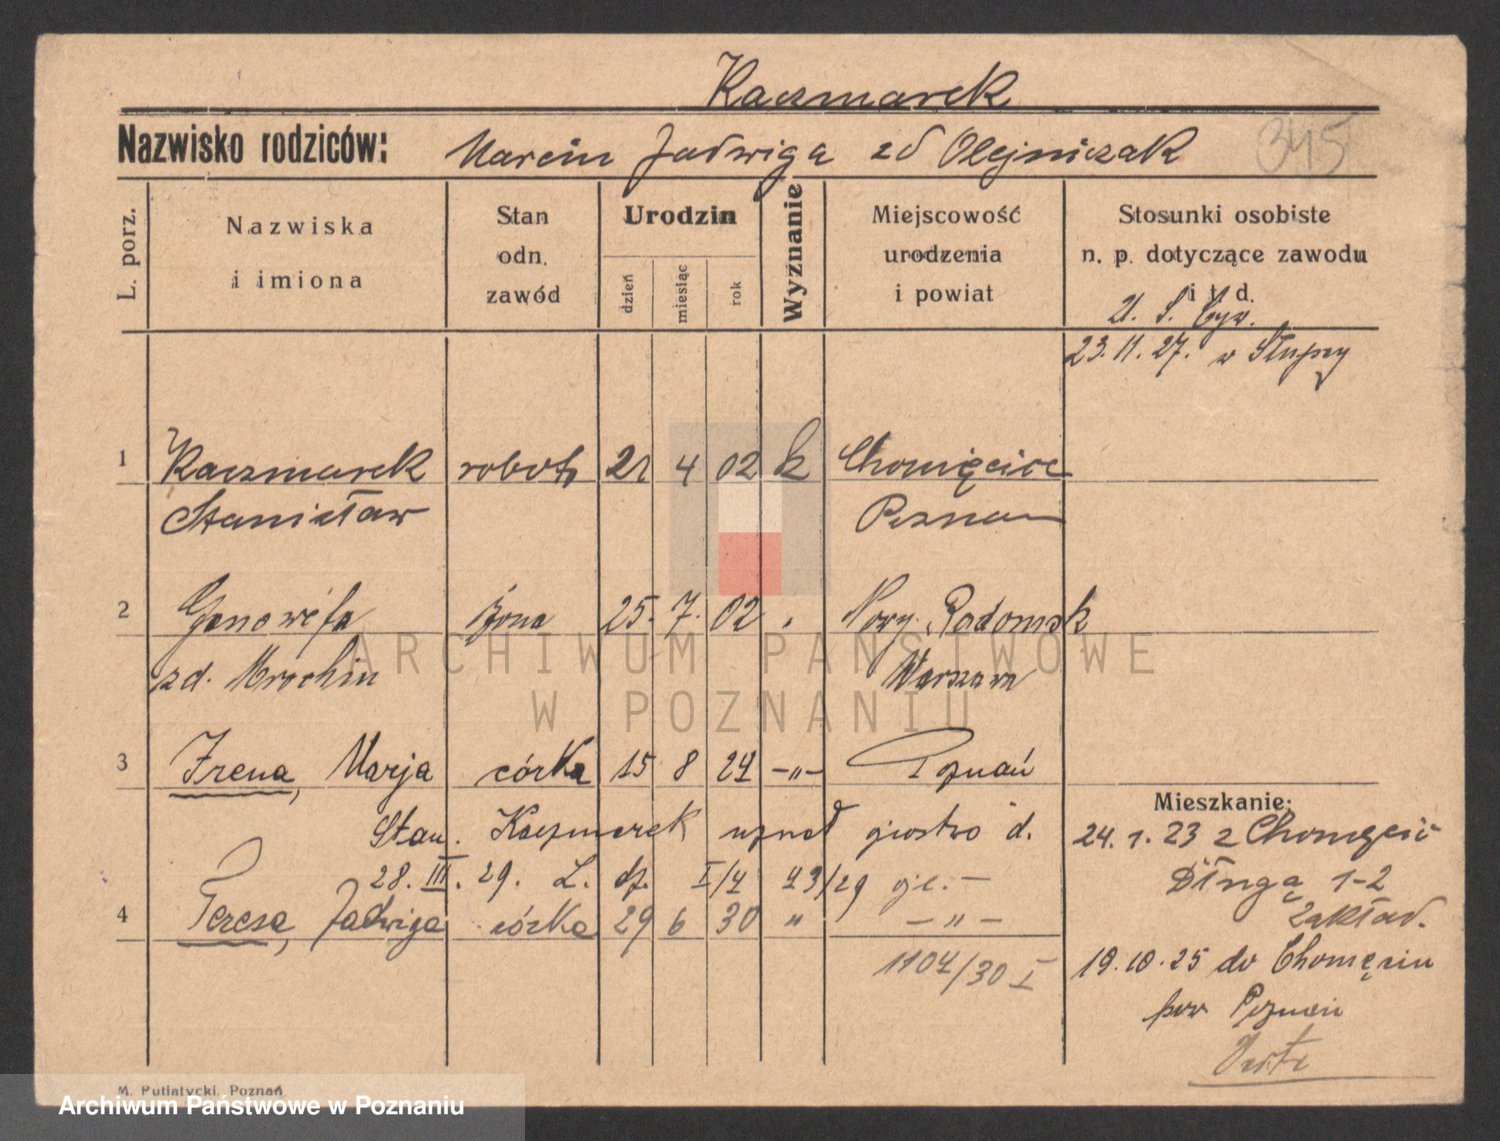 Kaczmarek
Nazwisko rodziców: Marcin Jadwiga zd Olejniczak 345
L. porz.
Nazwiska i imiona
Stan odn. zawód
Urodzin
dzień
miesiąc
rok
Wyznanie
Miejscowość urodzenia i powiat
Stosunki osobiste n. p. dotyczące zawodu i t d.
U. S. Cyw.
23. 11. 27. w Słupcy
1 Kaczmarek robotn 21 4 02 k Chomięcice
Stanisław Poznan
2 Genowefa żona 25. 7. 02 Nowy Radomsk
zd. Mrochin Warszawa
3 Irena, Marja córka 15 8 24 -"- Poznań
Mieszkanie:
Stan. Kaczmarek uznał ojcostwo d.
24. 1. 23 z Chomęcic
28. III. 29. L. dz. I/4 43/29
Długa 1-2
Zakład.
4 Teresa, Jadwiga córka 29 6 30 " -"-
1104/30 I
19. 10. 25 do Chomęcic
pow Poznań
Verte
M. Putiatycki, Poznań
ARCHIWUM PAŃSTWOWE
W POZNANIU
Archiwum Państwowe w Poznaniu